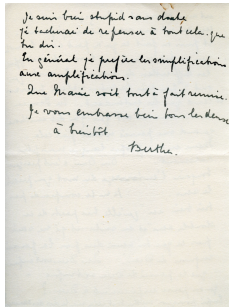 Je suis bien stupid sans doute
je tâcherai de repenser à tout cela. que
tu dis.
En général je préfère les simplifications
aux amplifications.
Que Marie soit tout à fait remise.
Je vous embrasse bien tous les deux
à bientôt
Berthe.